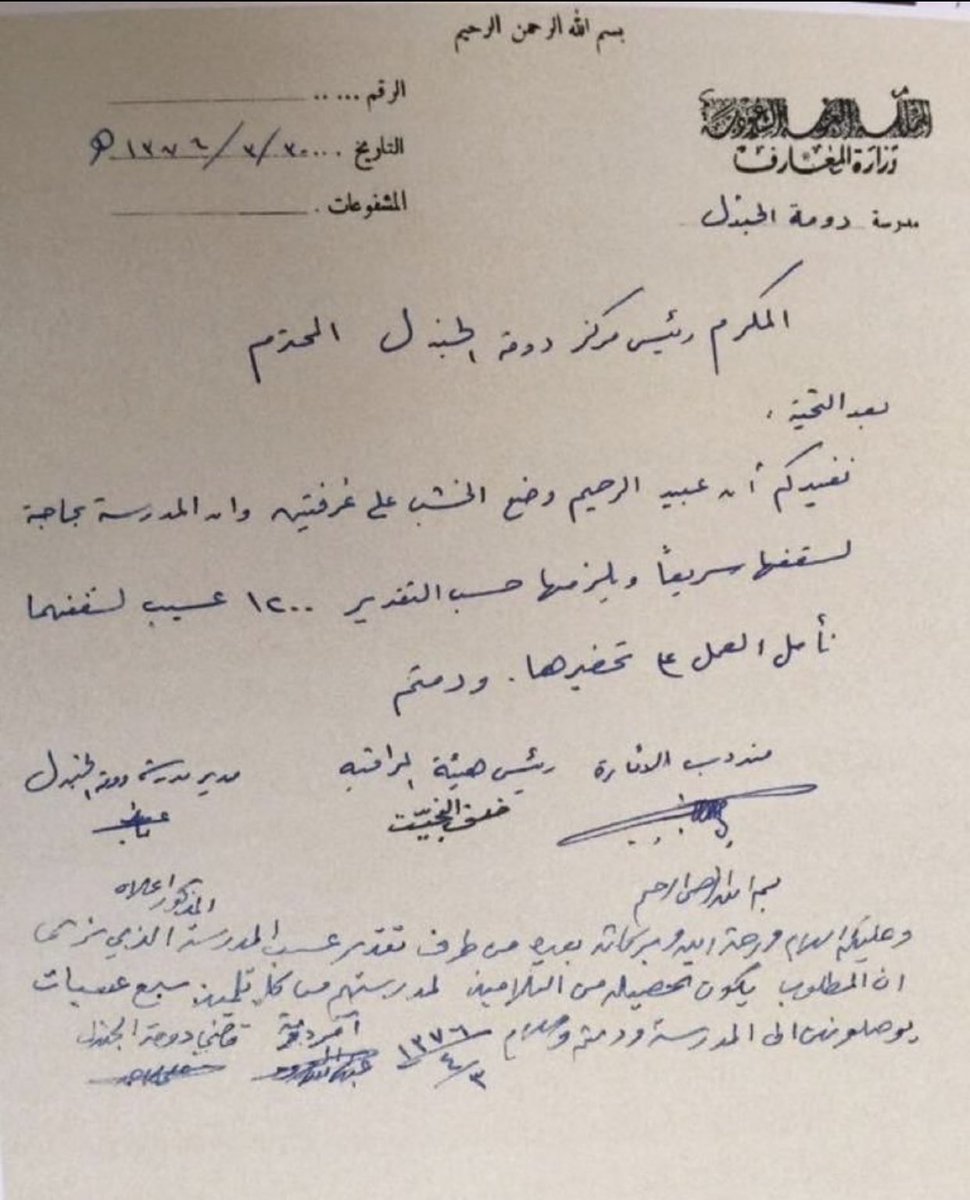 بسم الله الرحمن الرحيم
المملكة العربية السعودية
وزارة المعارف
مدرسة دومة الجندل
الرقم .....
التاريخ ..... ٣٠/٣/١٣٧٦ هـ
المشفوعات .
المكرم رئيس مركز دومة الجندل المحترم
بعد التحية ،
نفيدكم أن عبيد الرحيم وضع الخشب على غرفتين وان المدرسة بحاجة
لسقفها سريعاً ويلزمها حسب التقدير ١٢٠٠ عسيب لسقفهما
نأمل العمل على تحضيرها . ودمتم
مندوب الامارة رئيس هيئة المراقبه مدير مدرسة دومة الجندل
بسم الله الرحمن الرحيم
المذكور اعلاه
وعليكم السلام ورحمة الله وبركاته بعده من طرف تقدير عسب المدرسة الذي
ان المطلوب يكون تحصيله من التلاميذ لمدرستهم من كل تلميذ سبع عسبان
يوصلونهن الى المدرسة ودمتم والسلام ٣/٤/١٣٧٦ قاضي دومة الجندل